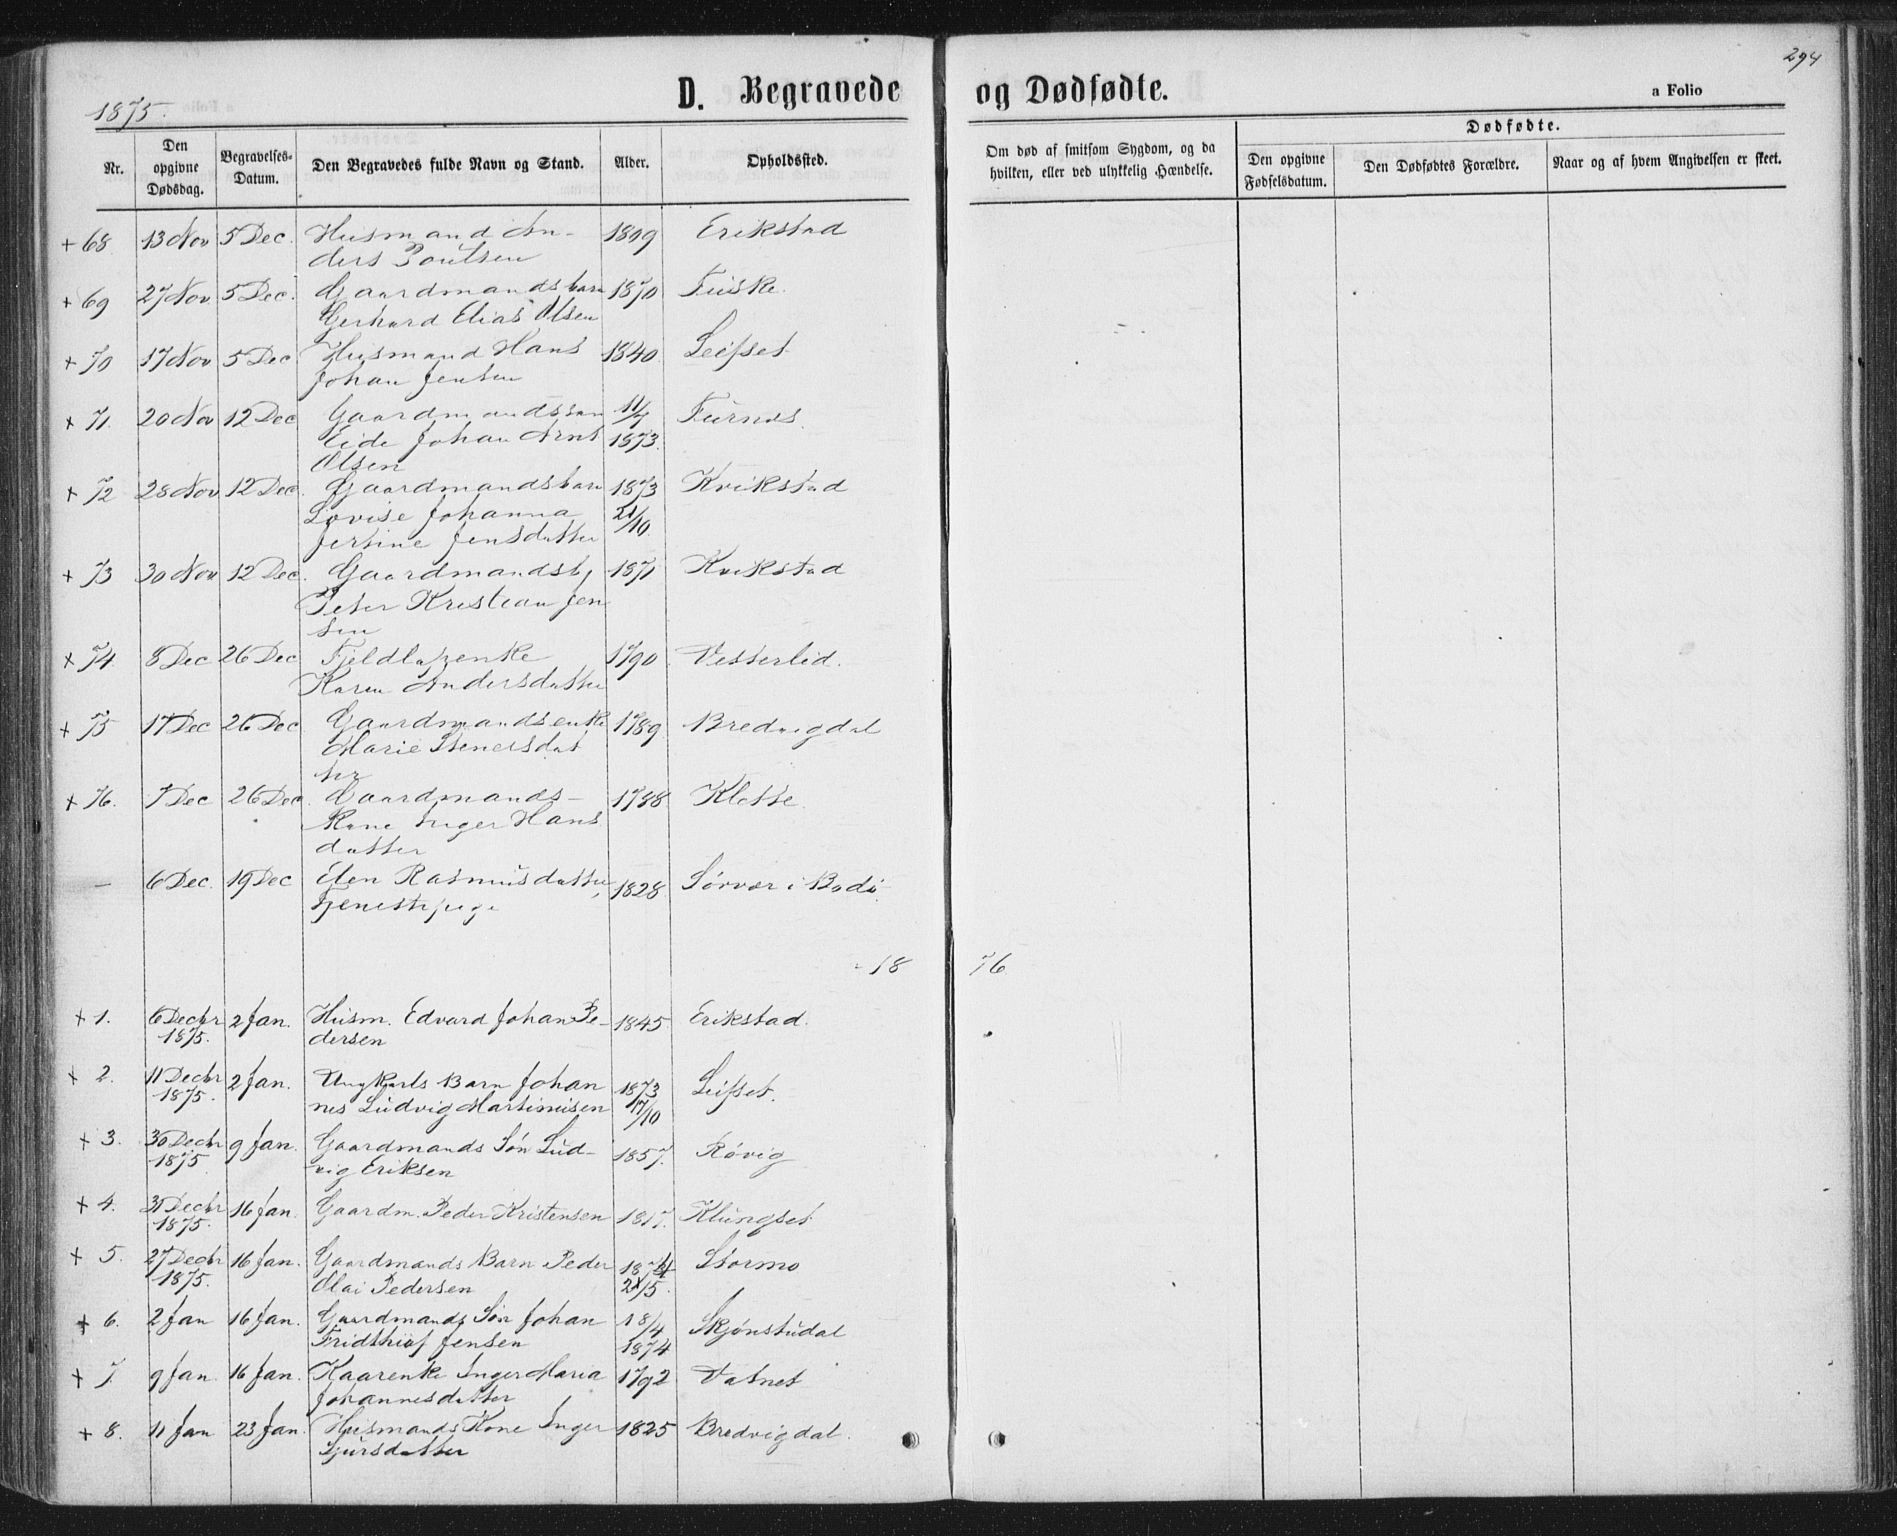 294
1875.
D. Begravede og Dødfødte.
a Folio
Nr.
Den opgivne Dødsdag.
Begravelses-Datum.
Den Begravedes fulde Navn og Stand.
Alder.
Opholdssted.
Om død af smitsom Sygdom, og da hvilken, eller ved ulykkelig Hændelse.
Dødfødte.
Den opgivne Fødselsdatum.
Den Dødfødtes Forældre.
Naar og af hvem Angivelsen er skeet.
+ 68 13 Nov 5 Dec. Husmand An- 1809 Erikstad
ders Poulsen
+ 69 27 Nov 5 Dec. Gaardmandsbarn 1870 Fuske
Gerhard Elias Olsen
+ 70 17 Nov 5 Dec Husmand Hans 1840 Leifset
Johan Jensen
+ 71 20 Nov 12 Dec Gaardmandsbarn 11/7 Furnes
Eide Johan Arnt 1873
Olsen
+ 72 28 Nov 12 Dec. Gaardmandsbarn 1873 Kvikstad
Lovise Johanna 21/10
Jertine Jensdatter
+ 73 30 Nov 12 Dec. Gaardmandsb, 1871 Kvikstad
Peter Kristian Jen
sen
+ 74 8 Dec 26 Dec Fjeldlapenke 1790 Vesterlid.
Karen Andersdatter
+ 75 17 Dec 26 Dec Gaardmandsenke 1789 Bredvigdal
Marie Stenersdat
ter
+ 76. 7 Dec 26 Dec. Gaardmands- 1788 Klette
Kone Inger Hans
datter
— 6 Dec. 19 Dec Elen Rasmusdatter, 1828 Sørvær i Bodø
Tjenestepige
18 76
+ 1. 6 Decbr 2 Jan. Husm. Edvard Johan Pe- 1845 Erikstad.
1875. dersen
+ 2. 11 Decbr 2 Jan. Ungkarls Barn Johan 1873 Leifset.
1875. nes Ludvig Martinusen 17/10
+ 3. 30 Decbr 9 Jan. Gaardmands Søn Lud- 1857. Røvig
1875 vig Eriksen
+ 4. 31 Decbr 16 Jan. Gaardm. Peder Kristensen 1817. Klungset
1875.
+ 5. 27 Decbr 16 Jan. Gaardmands Barn Peder 1874 Stormo
1875. Olai Pedersen 21/5.
+ 6. 2 Jan 16 Jan. Gaardmands Søn Johan 18/4 Skjønstudal
Fridthiof Jensen 1874
+ 7 9 Jan 16 Jan. Kaarenke Inger Maria 1792 Vatnet
Johannesdatter
+ 8. 11 Jan 23 Jan. Husmands Kone Inger 1825 Bredvigdal.
Sjursdatter